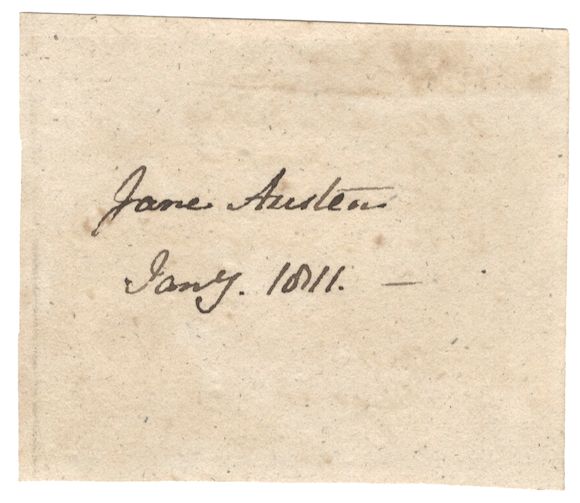 Jane Austen
Jany. 1811. —